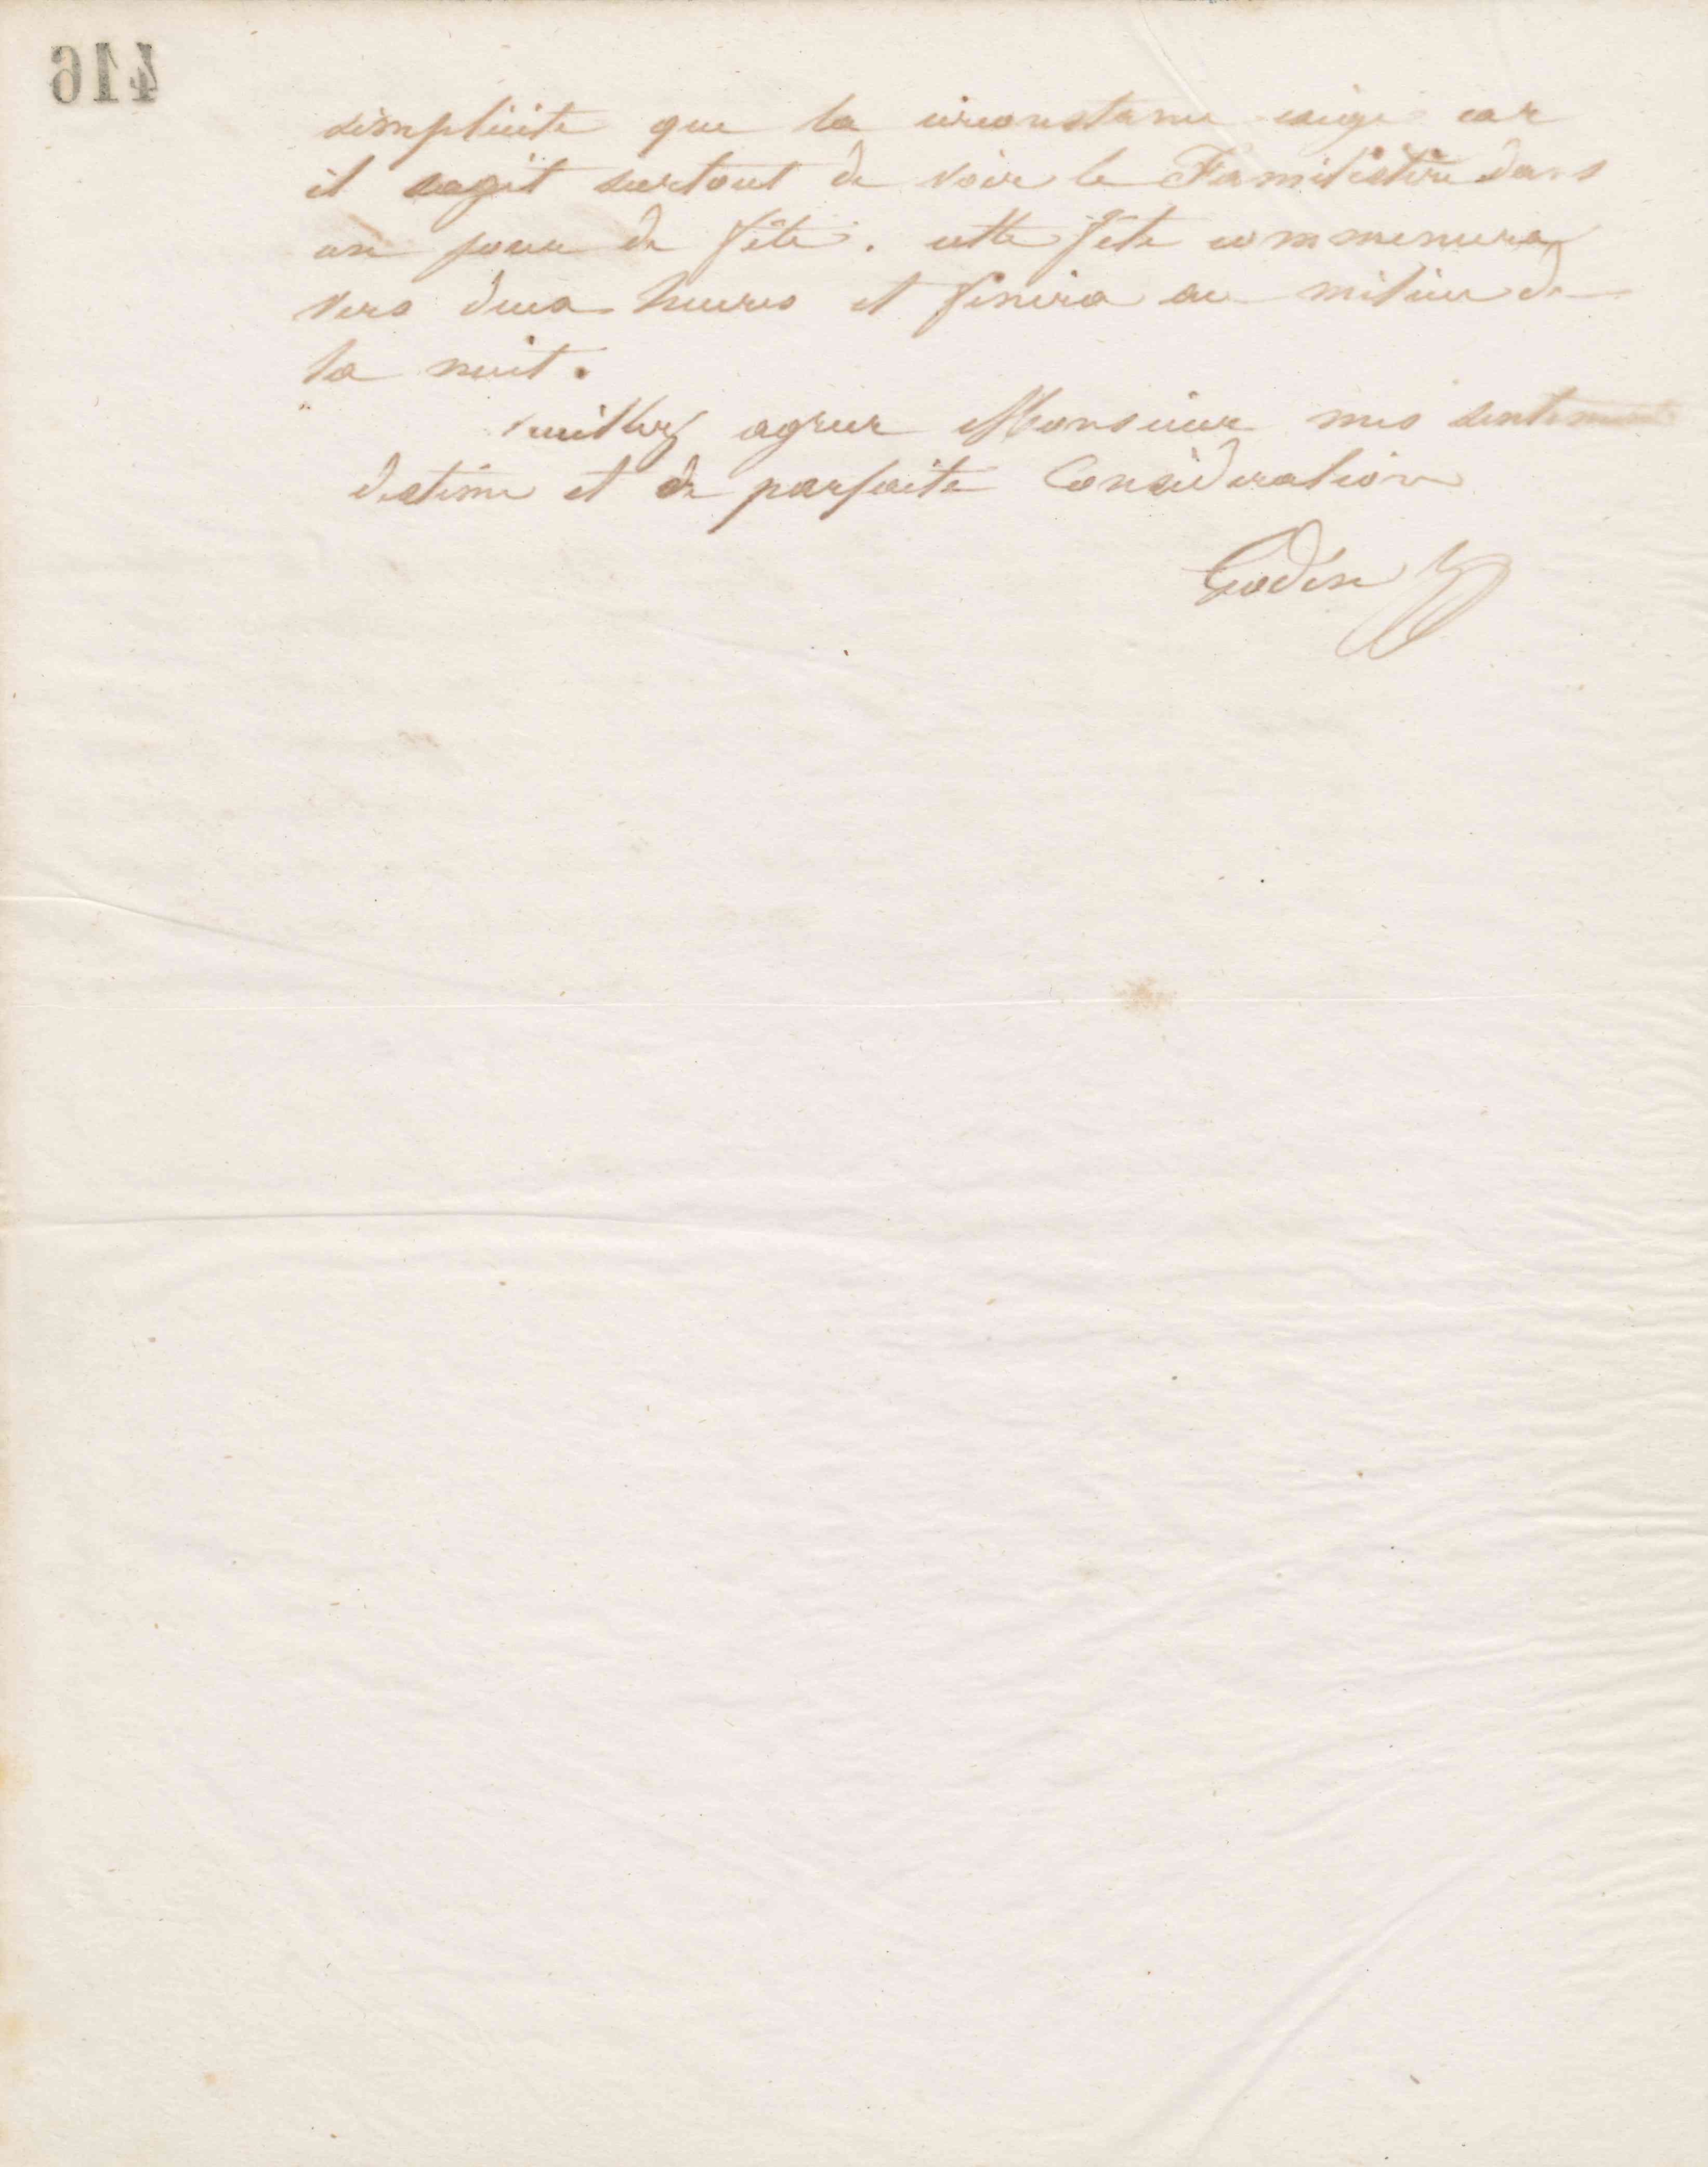 416
simplicite que la circonstance exige car
il sagit surtout de voir le Familistère dans
un jour de fête. cette fête commencera
vers deux heures et finira au milieu de
la nuit.
veuillez agreer Monsieur mes sentiments
destime et de parfaite Consideration
Godin